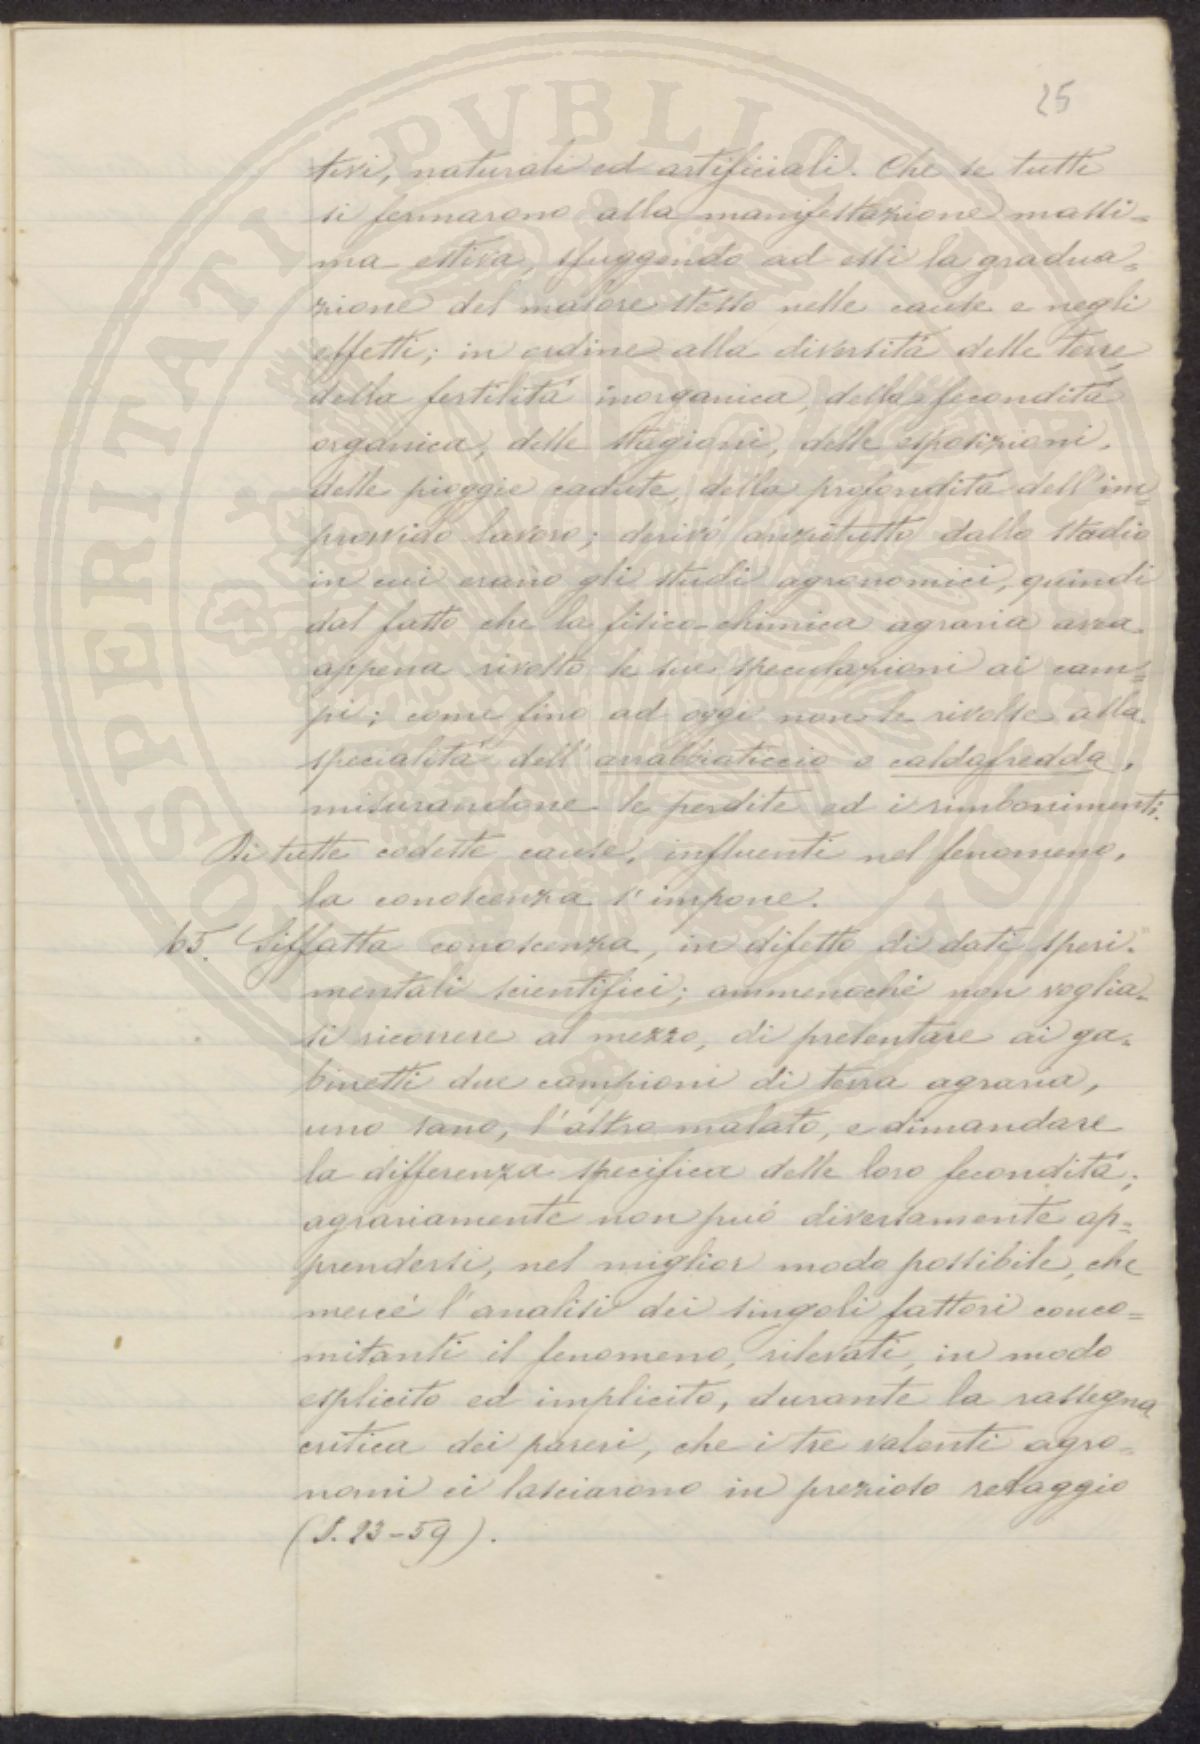 25
tivi, naturali ed artificiali. Che se tutti
si fermarono alla manifestazione massi=
ma estiva, sfuggendo ad essi la gradua=
zione del malore stesso nelle cause e negli
effetti; in ordine alla diversità delle terre
della fertilità inorganica, della fecondità
organica, delle stagioni, delle esposizioni,
delle pioggie cadute, della profondità dell'im=
provvido lavoro; derivò anzitutto dallo stadio
in cui erano gli studi agronomici, quindi
dal fatto che la fisico-chimica agraria avea
appena rivolto le sue speculazioni ai cam=
pi; come fino ad oggi non le rivolse alla
specialità dell'arrabbiaticcio o caldafredda,
misurandone le perdite ed i rimbonimenti.
Di tutte codeste cause, influenti nel fenomeno,
la conoscenza s'impone.
65. Siffatta conoscenza, in difetto di dati speri=
mentali scientifici; ammenochè non voglia=
si ricorrere al mezzo, di presentare ai ga=
binetti due campioni di terra agraria,
uno sano, l'altro malato, e dimandare
la differenza specifica delle loro fecondità;
agrariamente non può diversamente ap=
prendersi, nel miglior modo possibile, che
mercè l'analisi dei singoli fattori conco=
mitanti il fenomeno, rilevati, in modo
esplicito ed implicito, durante la rassegna
critica dei pareri, che i tre valenti agro=
nomi ci lasciarono in prezioso retaggio
(S. 23-59).
SPERITATI PVBLICAE